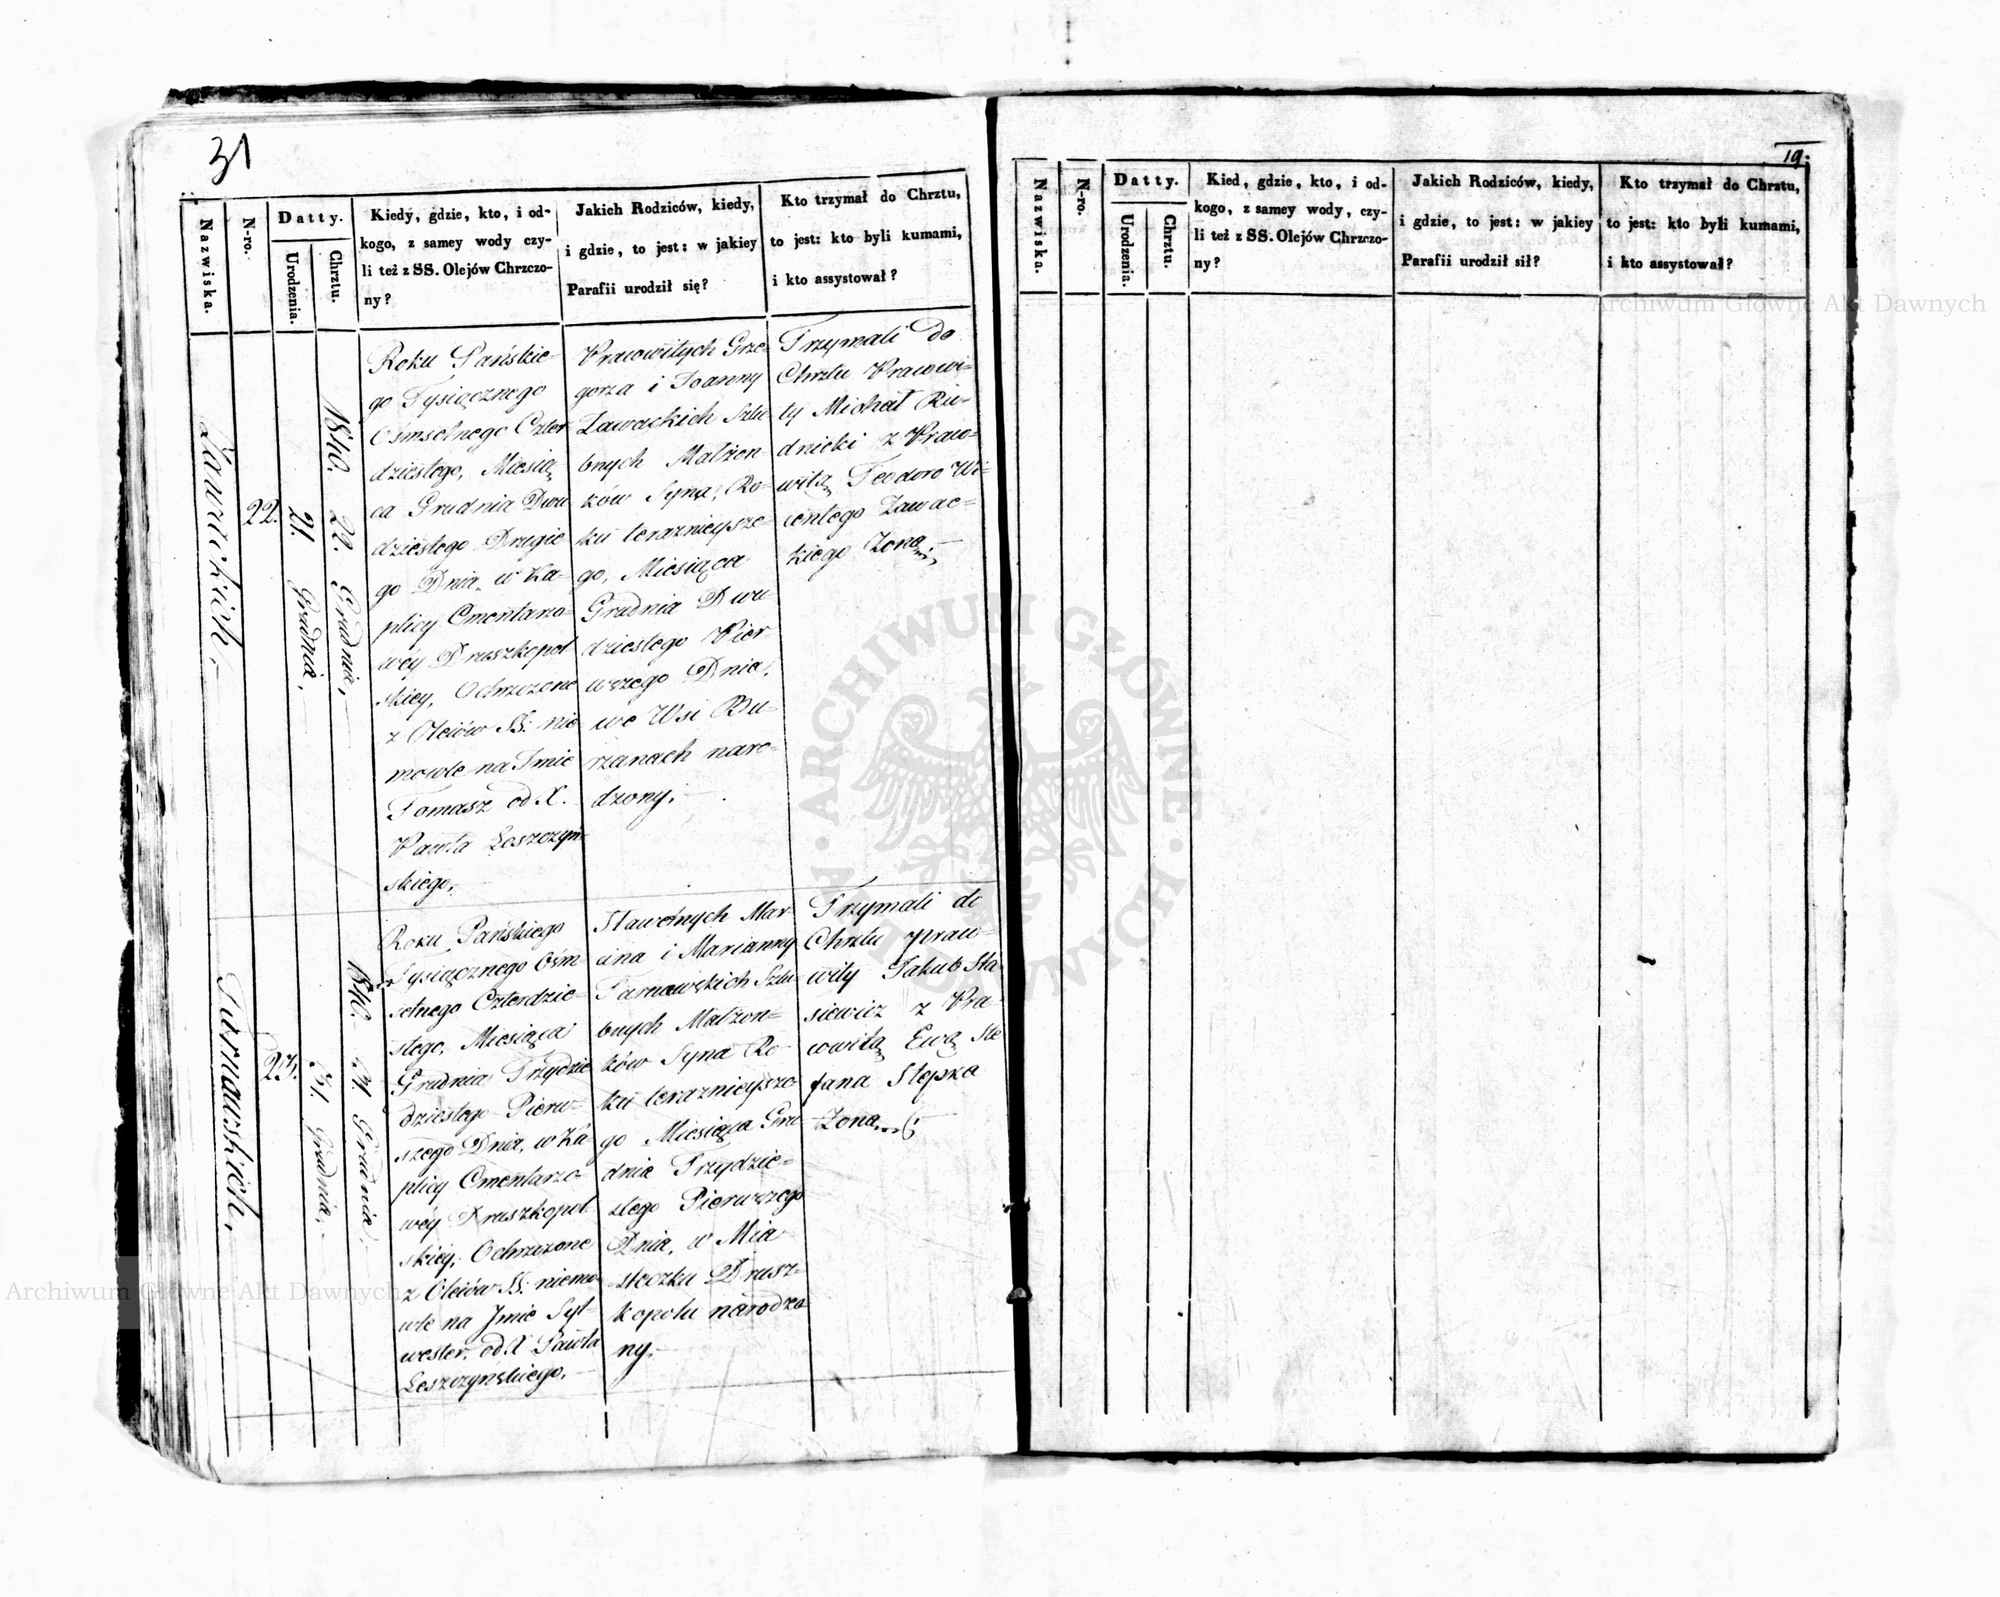 31
Nazwiska.
N-ro.
Datty.
Urodzenia.
Chrztu.
Kiedy, gdzie, kto, i od-
kogo, z samey wody czy-
li też z SS. Olejów Chrzczo-
ny?
Jakich Rodziców, kiedy,
i gdzie, to jest: w jakiey
Parafii urodził się?
Kto trzymał do Chrztu,
to jest: kto byli kumami,
i kto assystował?
Zawackich.
22.
21. Grudnia,
1840. 22. Grudnia,
Roku Pańskie-
go Tysiącznego
Ośmsetnego Czter
dziestego, Miesią
ca Grudnia Dwu
dziestego Drugie
go Dnia, w Ka-
plicy Cmentarzo-
wéy Druszkopol
skiey, Ochrzczone
z Oleiów SS: nie
mowle na Imie
Tomasz od X.
Pawła Leszczyń-
skiego.
Pracowitych Grze-
gorza i Joanny
Zawackich Szlu
bnych Małżon-
ków Syna, Ro-
ku teraznieysze-
go, Miesiąca
Grudnia Dwu
dziestego Pier
wszego Dnia,
we Wsi Bu-
rzanach naro-
dzony.
Trzymali do
Chrztu Pracowi-
ty Michał Ru-
dnicki z Praco-
witą Teodorą Wi-
centego Zawac-
kiego Żoną.
Tarnawskich.
23.
31. Grudnia.
1840. 31. Grudnia.
Roku Pańskiego
Tysiącznego Ośm-
setnego Czterdzie-
stego, Miesiąca
Grudnia Trzydzie
dziestego Pierw-
szego Dnia, w Ka
plicy Cmentarzo-
wéy Druszkopol-
skiéy, Ochrzczone
z Oleiów SS: niemo-
wle na Jmie Syl-
wester, od X Pawła
Leszczyńskiego.
Sławetnych Mar-
cina i Marianny
Tarnawskich Szlu-
bnych Małżon-
ków Syna Ro-
ku teraznieysze
go Miesiąca Gru
dnia Trzydzie-
stego Pierwszego
Dnia, w Mia
steczku Drusz-
kopolu narodzo
ny.
Trzymali do
Chrztu praco-
wity Jakub Sta
siewicz z Pra-
cowitą Ewą Ste
fana Stepka
Żoną.
19.
Nazwiska.
N-ro.
Datty.
Urodzenia.
Chrztu.
Kied, gdzie, kto, i od-
kogo, z samey wody, czy-
li też z SS. Olejów Chrzczo-
ny?
Jakich Rodziców, kiedy,
i gdzie, to jest: w jakiey
Parafii urodził sił?
Kto trzymał do Chrztu,
to jest: kto byli kumami,
i kto assystował?
Archiwum Główne Akt Dawnych
ARCHIWUM GŁÓWNE AKT DAWNYCH
Archiwum Główne Akt Dawnych